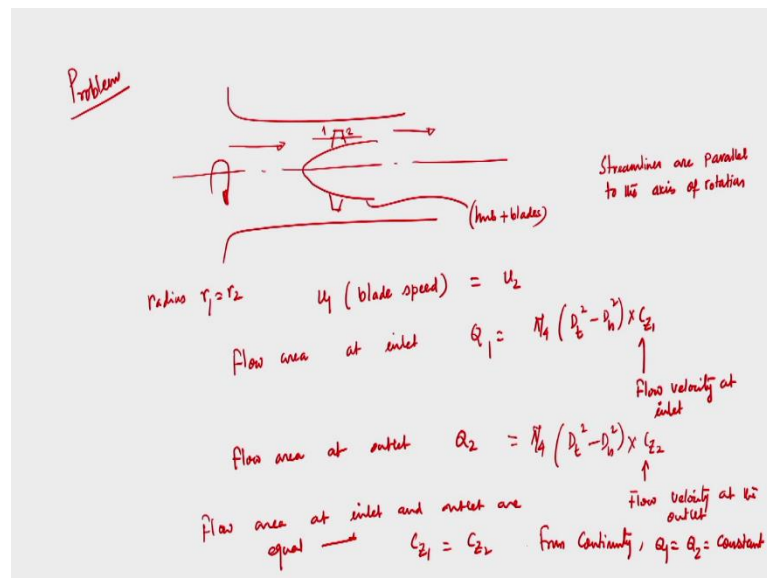 Problem
1 2
Streamlines are parallel
to the axis of rotation
(hub + blades)
radius r₁ = r₂ u₁ (blade speed) = u₂
Flow area at inlet Q₁ = π/4 (Dₜ² - Dₕ²) × C_z₁
Flow velocity at
inlet
Flow area at outlet Q₂ = π/4 (Dₜ² - Dₕ²) × C_z₂
Flow velocity at the
outlet
Flow area at inlet and outlet are
equal — C_z₁ = C_z₂ From Continuity, Q₁ = Q₂ = constant